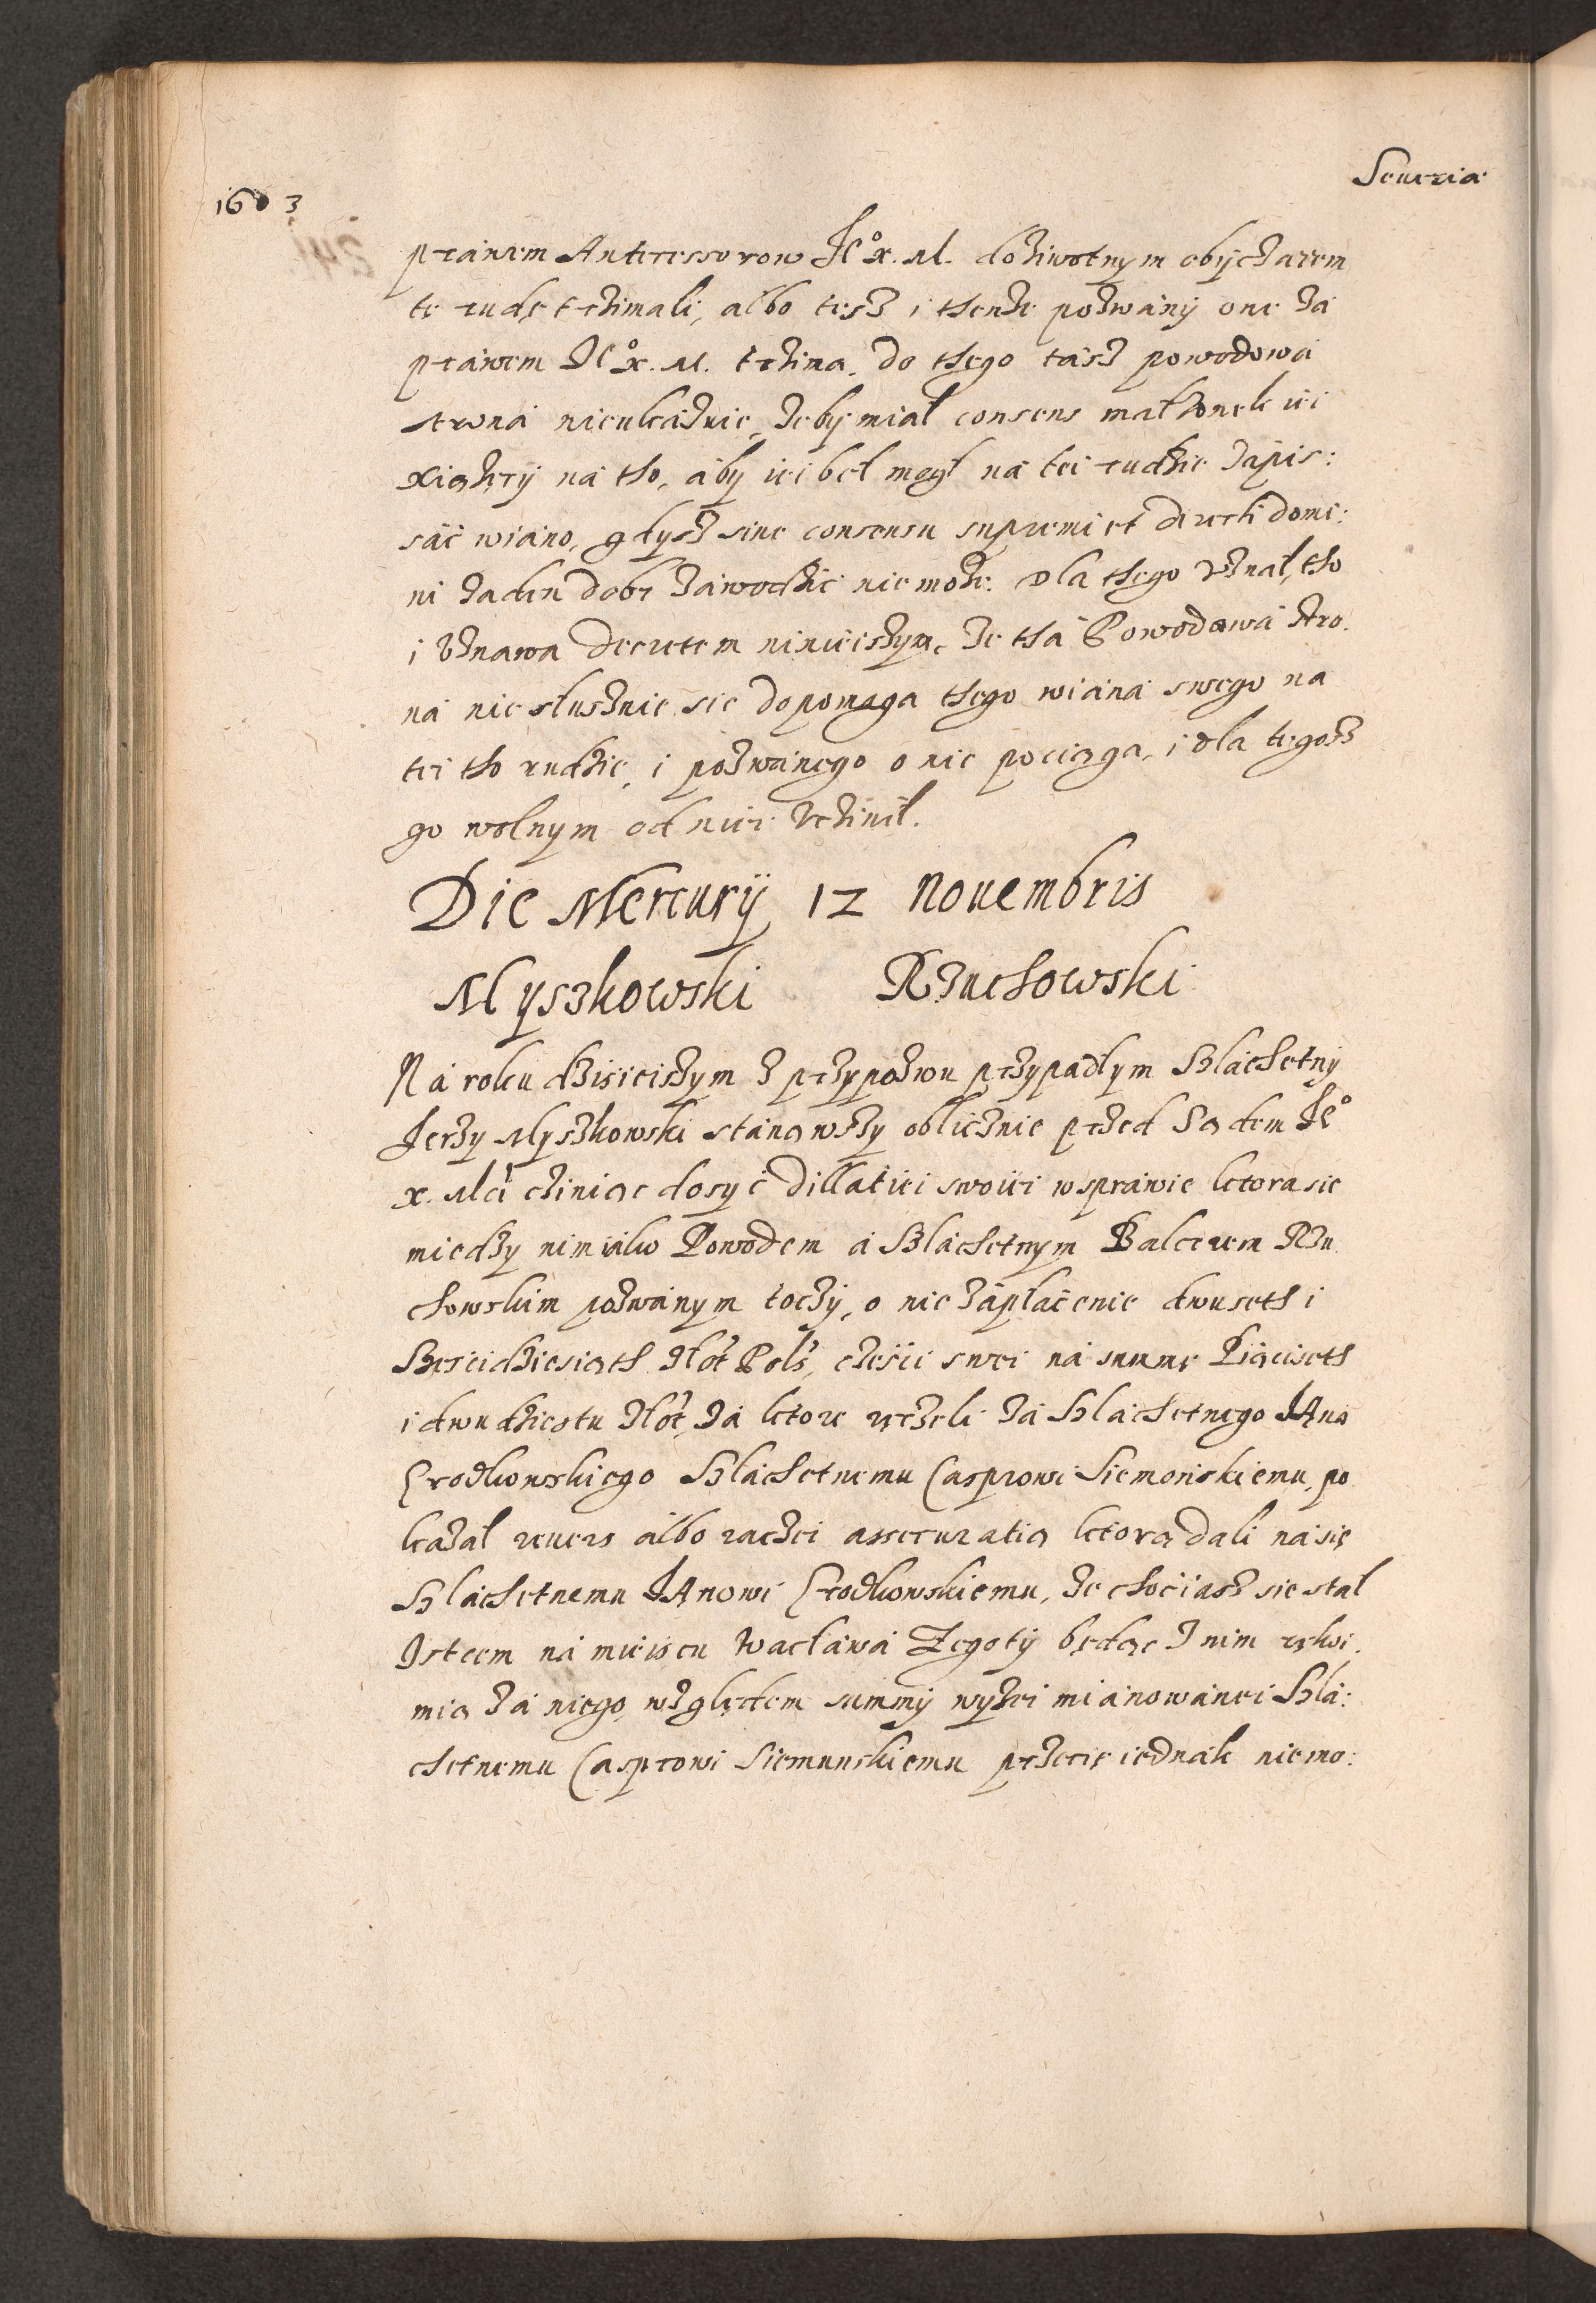 Seueria
1603
práwem Antecessorow Je° x. M. dożiwotnym obyczaiem
te rudę trzimali, albo tesz i thenże pozwány one zá
práwem Je° x. M. trzima. do thego tász powodowá
stroná nieukáżuie, żeby miáł consens małżonek iei
xiążęcy ná tho, áby iei beł mogł ná tei rudzie zápis:
sáć wiáno, gdysz sine consensu supremi et directi domi:
ni żaden dobr záwodzić nie może. Dla thego uznał, tho
i uznawa decretem ninieiszym, że thá Powodowá stro
ná niesłusznie sie dopomaga thego wiáná swego ná
tei tho rudzie, i pozwánego o nie pociąga, i dla tegosz
go wolnym od niei uczinił.
Die Mercurÿ 12 Nouembris
Myszkowski Rzuchowski
Ná roku dzisieiszym z przypozwu przypadłym Szláchetny
Jerzy Myszkowski stánąwszy oblicznie przed Sądem Je°
x. Mći cziniąc dosyć dillatiei swoiei w spráwie ktora sie
miedzy nim iáko Powodem á Szláchetnym Balcerem Rzu
chowskim pozwánym toczy, o nie zápłácenie dwuseth i
Szescidziesiąth złot Pols, częśći swei ná summę Piąciseth
i dwudziestu złot, zá ktore ręczeli zá Szláchetnego JAna
Grodkowskiego Szláchetnemu Casprowi Siemońskiemu, po
kazał reuers álbo raczei assecuratią ktorą dali ná się
Szláchetnemu JAnowi Grodkowskiemu, że choćiasz sie stał
Istcem ná mieiscu Wacłáwá Zegoty będąc z nim rękoi
mią zá niego względem summy wyżei miánowánei Szlá:
chetnemu Casprowi Siemunskiemu przecię iednák niemo: